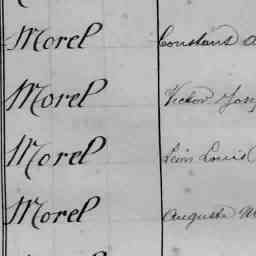 Morel Constant
Morel Victor
Morel Léon Louis
Morel Auguste